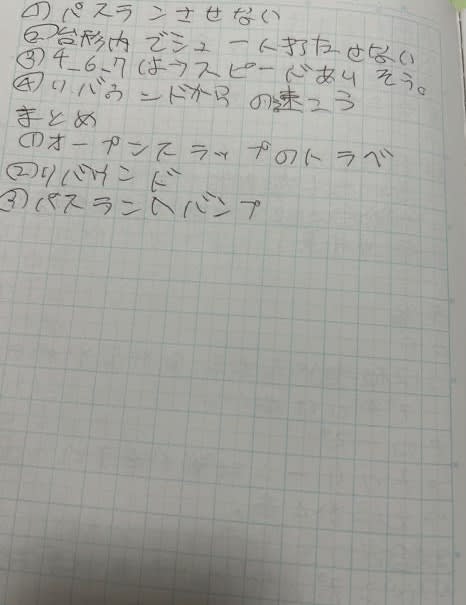 ①パスランさせない
②台形内でシュート打たせない
③4_6_7はスピードありそう。
④リバウンドからの速こう
まとめ
①オープンスラップのトラベ
②リバウンド
③パスランへバンプ